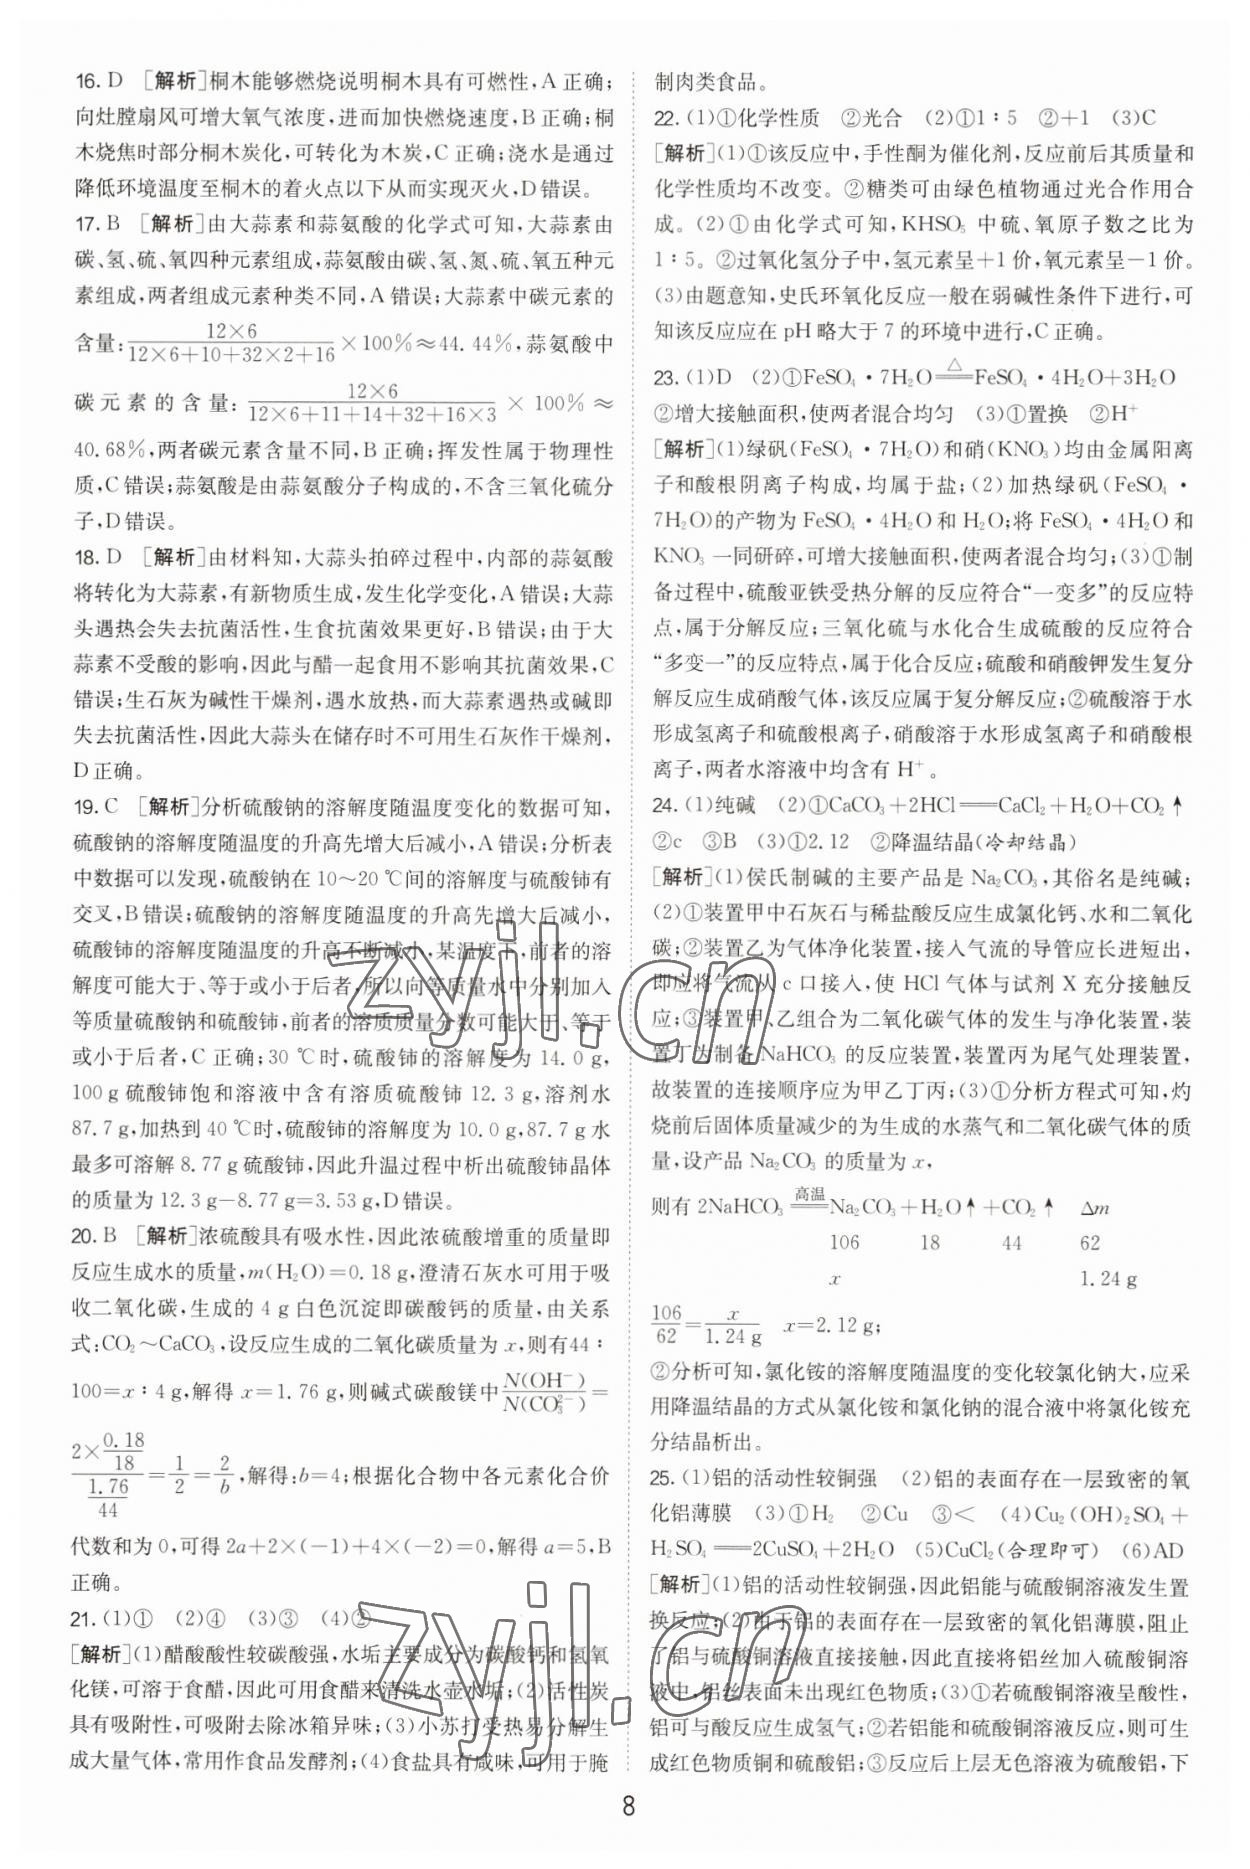 16. D [解析]桐木能够燃烧说明桐木具有可燃性,A正确;
向灶膛扇风可增大氧气浓度,进而加快燃烧速度,B正确;桐
木烧焦时部分桐木炭化,可转化为木炭,C正确;浇水是通过
降低环境温度至桐木的着火点以下从而实现灭火,D错误。
17. B [解析]由大蒜素和蒜氨酸的化学式可知,大蒜素由
碳、氢、硫、氧四种元素组成,蒜氨酸由碳、氢、氮、硫、氧五种元
素组成,两者组成元素种类不同,A错误;大蒜素中碳元素的
含量:12×6/(12×6+10+32×2+16)×100%≈44.44%,蒜氨酸中
碳元素的含量:12×6/(12×6+11+14+32+16×3)×100%≈
40.68%,两者碳元素含量不同,B正确;挥发性属于物理性
质,C错误;蒜氨酸是由蒜氨酸分子构成的,不含三氧化硫分
子,D错误。
18. D [解析]由材料知,大蒜头拍碎过程中,内部的蒜氨酸
将转化为大蒜素,有新物质生成,发生化学变化,A错误;大蒜
头遇热会失去抗菌活性,生食抗菌效果更好,B错误;由于大
蒜素不受酸的影响,因此与醋一起食用不影响其抗菌效果,C
错误;生石灰为碱性干燥剂,遇水放热,而大蒜素遇热或碱即
失去抗菌活性,因此大蒜头在储存时不可用生石灰作干燥剂,
D正确。
19. C [解析]分析硫酸钠的溶解度随温度变化的数据可知,
硫酸钠的溶解度随温度的升高先增大后减小,A错误;分析表
中数据可以发现,硫酸钠在10~20 ℃间的溶解度与硫酸铈有
交叉,B错误;硫酸钠的溶解度随温度的升高先增大后减小,
硫酸铈的溶解度随温度的升高不断减小,某温度下,前者的溶
解度可能大于、等于或小于后者,所以向等质量水中分别加入
等质量硫酸钠和硫酸铈,前者的溶质质量分数可能大于、等于
或小于后者,C正确;30 ℃时,硫酸铈的溶解度为14.0 g,
100 g硫酸铈饱和溶液中含有溶质硫酸铈12.3 g,溶剂水
87.7 g,加热到40 ℃时,硫酸铈的溶解度为10.0 g,87.7 g水
最多可溶解8.77 g硫酸铈,因此升温过程中析出硫酸铈晶体
的质量为12.3 g−8.77 g=3.53 g,D错误。
20. B [解析]浓硫酸具有吸水性,因此浓硫酸增重的质量即
反应生成水的质量,m(H₂O)=0.18 g,澄清石灰水可用于吸
收二氧化碳,生成的4 g白色沉淀即碳酸钙的质量,由关系
式:CO₂~CaCO₃,设反应生成的二氧化碳质量为x,则有44∶
100=x∶4 g,解得x=1.76 g,则碱式碳酸镁中N(OH⁻)/N(CO₃²⁻)=
(2×0.18/18)/(1.76/44)=1/2=2/b,解得:b=4;根据化合物中各元素化合价
代数和为0,可得2a+2×(−1)+4×(−2)=0,解得a=5,B
正确。
21. (1)① (2)④ (3)③ (4)②
[解析](1)醋酸酸性较碳酸强,水垢主要成分为碳酸钙和氢氧
化镁,可溶于食醋,因此可用食醋来清洗水壶水垢;(2)活性炭
具有吸附性,可吸附去除冰箱异味;(3)小苏打受热易分解生
成大量气体,常用作食品发酵剂;(4)食盐具有咸味,可用于腌
制肉类食品。
22. (1)①化学性质 ②光合 (2)①1∶5 ②+1 (3)C
[解析](1)①该反应中,手性酮为催化剂,反应前后其质量和
化学性质均不改变。②糖类可由绿色植物通过光合作用合
成。(2)①由化学式可知,KHSO₅中硫、氧原子数之比为
1∶5。②过氧化氢分子中,氢元素呈+1价,氧元素呈−1价。
(3)由题意知,史氏环氧化反应一般在弱碱性条件下进行,可
知该反应应在pH略大于7的环境中进行,C正确。
23. (1)D (2)①FeSO₄·7H₂O══△══FeSO₄·4H₂O+3H₂O
②增大接触面积,使两者混合均匀 (3)①置换 ②H⁺
[解析](1)绿矾(FeSO₄·7H₂O)和硝(KNO₃)均由金属阳离
子和酸根阴离子构成,均属于盐;(2)加热绿矾(FeSO₄·
7H₂O)的产物为FeSO₄·4H₂O和H₂O;将FeSO₄·4H₂O和
KNO₃一同研碎,可增大接触面积,使两者混合均匀;(3)①制
备过程中,硫酸亚铁受热分解的反应符合“一变多”的反应特
点,属于分解反应;三氧化硫与水化合生成硫酸的反应符合
“多变一”的反应特点,属于化合反应;硫酸和硝酸钾发生复分
解反应生成硝酸气体,该反应属于复分解反应;②硫酸溶于水
形成氢离子和硫酸根离子,硝酸溶于水形成氢离子和硝酸根
离子,两者水溶液中均含有H⁺。
24. (1)纯碱 (2)①CaCO₃+2HCl══CaCl₂+H₂O+CO₂↑
②c ③B (3)①2.12 ②降温结晶(冷却结晶)
[解析](1)侯氏制碱的主要产品是Na₂CO₃,其俗名是纯碱;
(2)①装置甲中石灰石与稀盐酸反应生成氯化钙、水和二氧化
碳;②装置乙为气体净化装置,接入气流的导管应长进短出,
即应将气流从c口接入,使HCl气体与试剂X充分接触反
应;③装置甲、乙组合为二氧化碳气体的发生与净化装置,装
置丁为制备NaHCO₃的反应装置,装置丙为尾气处理装置,
故装置的连接顺序应为甲乙丁丙;(3)①分析方程式可知,灼
烧前后固体质量减少的为生成的水蒸气和二氧化碳气体的质
量,设产品Na₂CO₃的质量为x,
则有2NaHCO₃══高温══Na₂CO₃+H₂O↑+CO₂↑ Δm
106 18 44 62
x 1.24 g
106/62=x/1.24 g x=2.12 g;
②分析可知,氯化铵的溶解度随温度的变化较氯化钠大,应采
用降温结晶的方式从氯化铵和氯化钠的混合液中将氯化铵充
分结晶析出。
25. (1)铝的活动性较铜强 (2)铝的表面存在一层致密的氧
化铝薄膜 (3)①H₂ ②Cu ③< (4)Cu₂(OH)₂SO₄+
H₂SO₄══2CuSO₄+2H₂O (5)CuCl₂(合理即可) (6)AD
[解析](1)铝的活动性较铜强,因此铝能与硫酸铜溶液发生置
换反应;(2)由于铝的表面存在一层致密的氧化铝薄膜,阻止
了铝与硫酸铜溶液直接接触,因此直接将铝丝加入硫酸铜溶
液中,铝丝表面未出现红色物质;(3)①若硫酸铜溶液呈酸性,
铝可与酸反应生成氢气;②若铝能和硫酸铜溶液反应,则可生
成红色物质铜和硫酸铝;③反应后上层无色溶液为硫酸铝,下
8
zyjl.cn
zyjl.cn